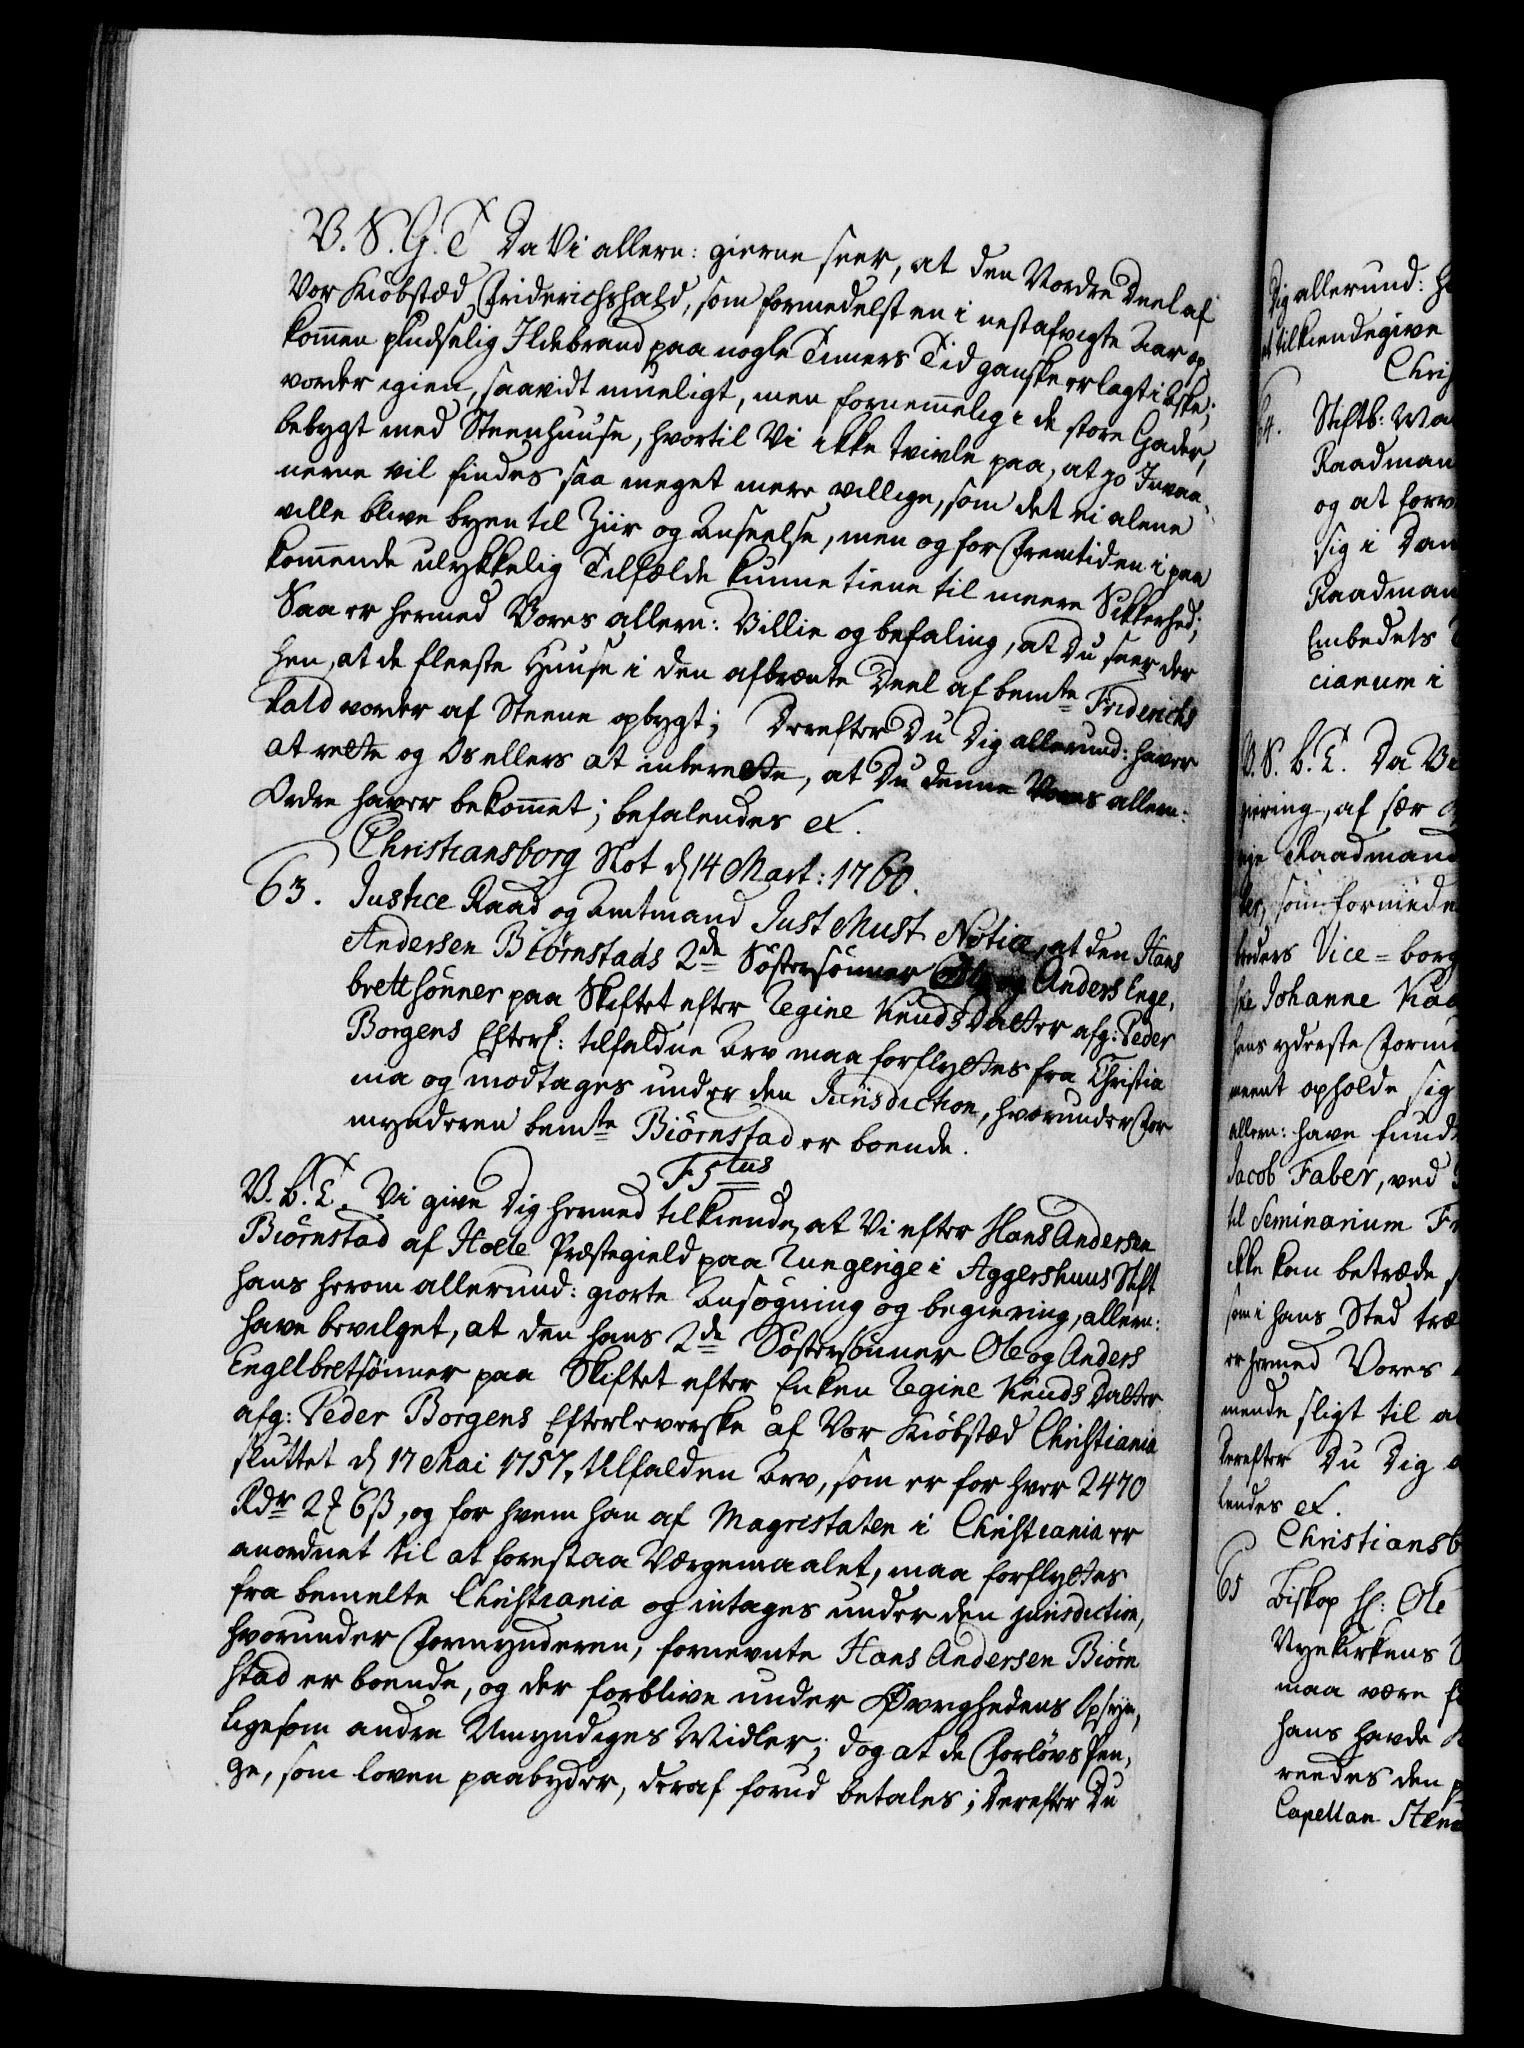 V. S. G. T Da Vi allern: gierne seer, at den Nordre Deel af
Vor Kiöbstæd Friderichshald, som formedelst en i nestafvigte Aar op
kom̄en pludselig Ildebrand paa nogle Timers Tid ganske er lagt i Aske;
vorder igien, saavidt mueligt, men fornem̄elig i de store Gader,
bebygt med Steenhuuse, hvortil Vi ikke tvivle paa, at jo Invaa-
nerne vil findes saa meget mere villige, som det ei alene
ville blive byen til Ziir og Anseelse, men og for Fremtiden i paa
kom̄ende ulykkelig Tilfælde kunne tiene til meere Sikkerhed;
Saa er hermed Vores allern: Villie og befaling, at Du seer der
hen, at de fleeste Huuse i den afbrænte Deel af bemte Friderichs
hald vorder af Steene opbygt; Derefter Du Dig allerund: haver
at rette og Os ellers at inberette, at Du denne Vores allern:
Ordre haver bekom̄et; befalendes etc.
Christiansborg Slot d 14 Mart: 1760.
63. Justice Raad og Amtmand Just Must Notice, at den Hans
Andersen Biörnstads 2de Söstersönner Ole og Anders Enge,
brettsönner paa Skiftet efter Regine Knuds Datter afg: Peder
Borgens Efterl: tilfaldne Arv maa forflyttes fra Christia
nia og modtages under den Jurisdiction, hvorunder For
mynderen bemte Biörnstad er boende.
F5tus
V. G. T. Vi give Dig hermed tilkiende, at Vi efter Hans Andersen
Biörnstad af Holle Præstegield paa Ringerige i Aggershuus Stift
hans herom allerund: giorte Ansögning og begiering, allern:
have bevilget, at den hans 2de Söstersönner Ole og Anders
Engelbretsönner paa Skiftet efter Enken Regine Knuds Datter
afg: Peder Borgens Efterleverske af Vor Kiöbstæd Christiania
sluttet d 17 Mai 1757, tilfalden Arv, som er for hver 2470
Rdr 2 ℥ 6 ß, og for hvem han af Magistraten i Christiania er
anordnet til at forestaa Værgemaalet, maa forflyttes
fra bemelte Christiania og intages under den jurisdiction,
hvorunder Formynderen, fornevnte Hans Andersen Biörn
stad er boende, og der forblive under Øvrighedens Opsyn,
ligesom andre Umyndiges Midler; dog at de Forlovs Pen,
ge, som loven paabyder, deraf forud betales; Derefter Du
Dig allerund: H
at tilkiendegive
Chris
64. Stiftb:
Raadman
og at forr
sig i Dan
Raadman
Embedets
cianum i
V. S. G. T. Da V
giering, af sær
eje Raadmand
som formede
Vice-borg
Johanne
hans yderste Formu
opholde sig
allern: have fund
Jacob Faber, ved
til Seminarium Fr
ikke kan betræde
som i hans Sted træ
er hermed Vores
mende sligt til a
Derefter Du Dig a
lendes etc.
Christiansb
65 Biskop H: Ole
Nyekirkens
maa være f
hans havde
reedes den p
Capellan Sten